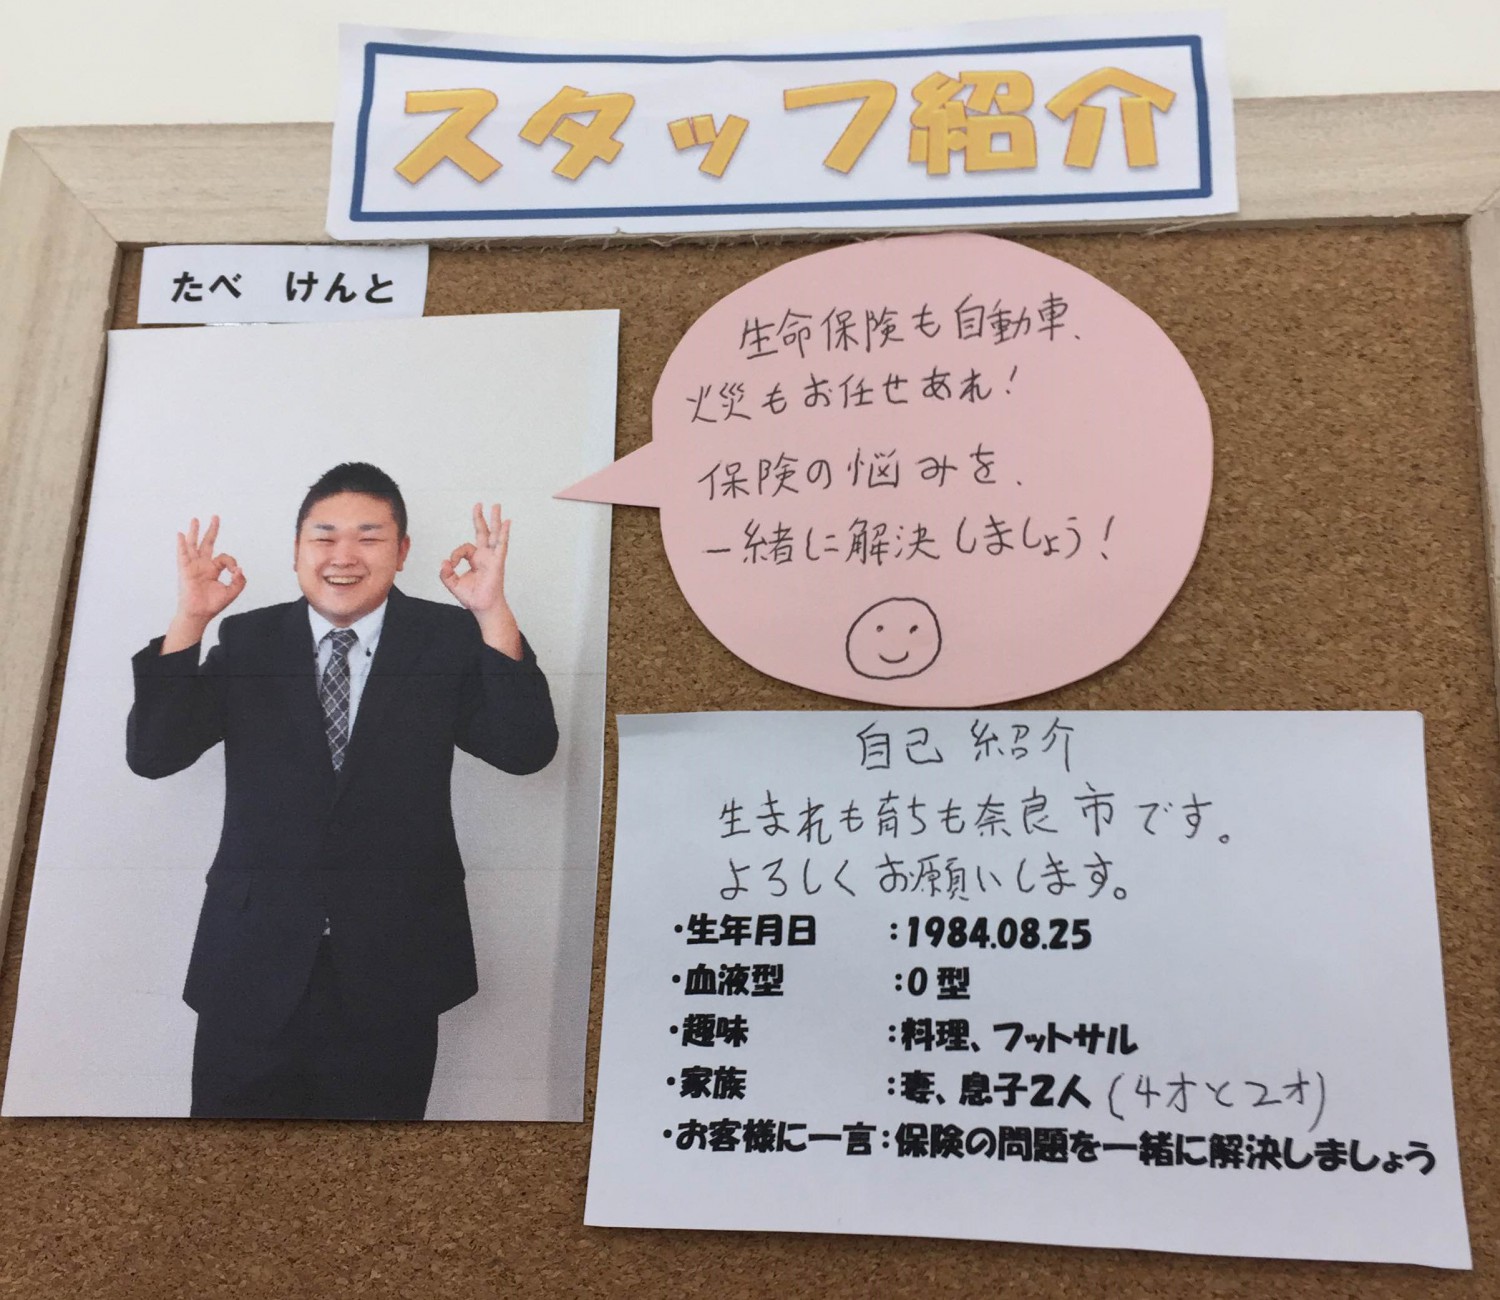 スタッフ紹介
たべ　けんと
生命保険も自動車、
火災もお任せあれ！
保険の悩みを、
一緒に解決しましょう！
自己紹介
生まれも育ちも奈良市です。
よろしくお願いします。
・生年月日　：1984.08.25
・血液型　：O型
・趣味　：料理、フットサル
・家族　：妻、息子2人（4才と2才）
・お客様に一言：保険の問題を一緒に解決しましょう